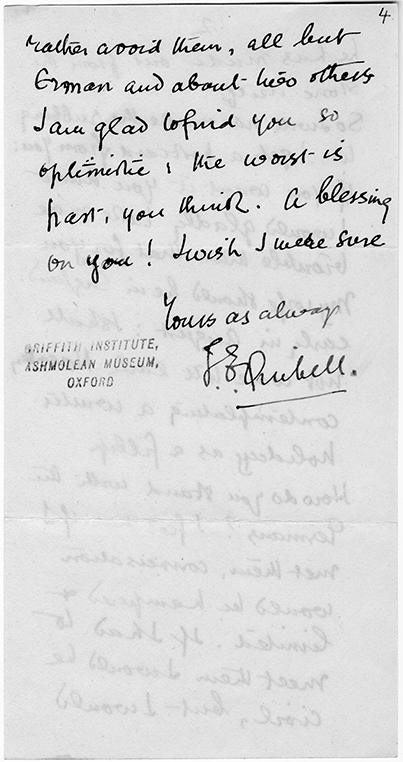 4
rather avoid them, all but
Erman and about two others
I am glad to find you so
optimistic; the worst is
past, you think. A blessing
on you! I wish I were sure
Yours as always
J. E. Quibell.
GRIFFITH INSTITUTE,
ASHMOLEAN MUSEUM,
OXFORD